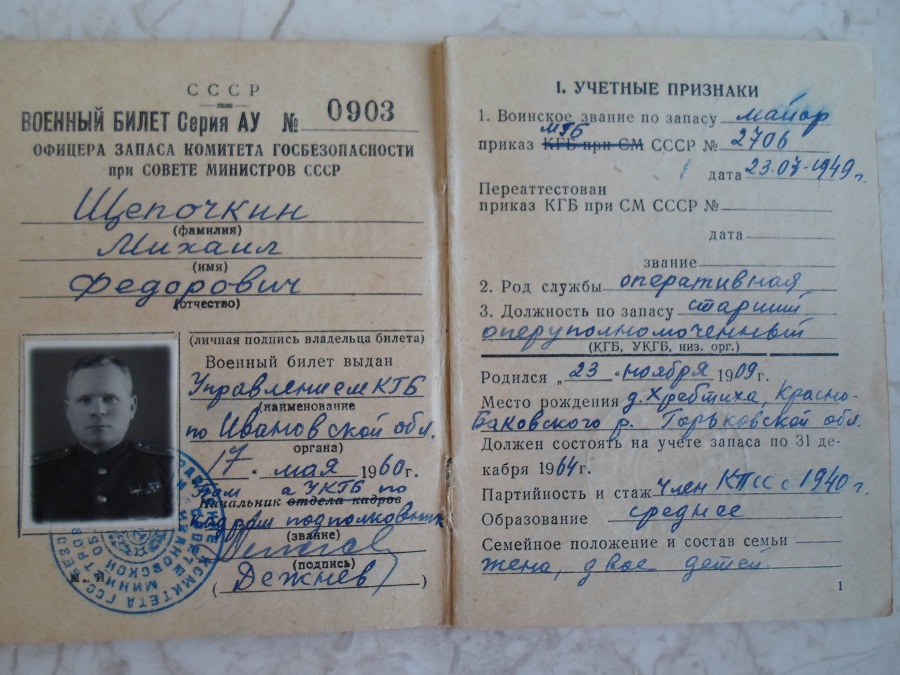 СССР
ВОЕННЫЙ БИЛЕТ Серия АУ № 0903
ОФИЦЕРА ЗАПАСА КОМИТЕТА ГОСБЕЗОПАСНОСТИ
при СОВЕТЕ МИНИСТРОВ СССР
Щепочкин
(фамилия)
Михаил
(имя)
Федорович
(отчество)
(личная подпись владельца билета)
Военный билет выдан
Управлением КГБ
(наименование
по Ивановской обл.
органа)
"17" мая 1960 г.
Начальник отдела кадров
а УКГБ по
кадрам подполковник
(звание)
(подпись)
(Дежнев)
I. УЧЕТНЫЕ ПРИЗНАКИ
1. Воинское звание по запасу майор
МГБ
приказ КГБ при СМ СССР № 2706
дата 23.07-1949 г.
Переаттестован
приказ КГБ при СМ СССР №
дата
звание
2. Род службы оперативная
3. Должность по запасу старший
оперуполномоченный
(КГБ, УКГБ, низ. орг.)
Родился „23" ноября 1909 г.
Место рождения д. Хребтиха, Красно-
Баковского р. Горьковской обл.
Должен состоять на учете запаса по 31 де-
кабря 1964 г.
Партийность и стаж Член КПСС с 1940 г.
Образование среднее
Семейное положение и состав семьи
жена, двое детей.
1